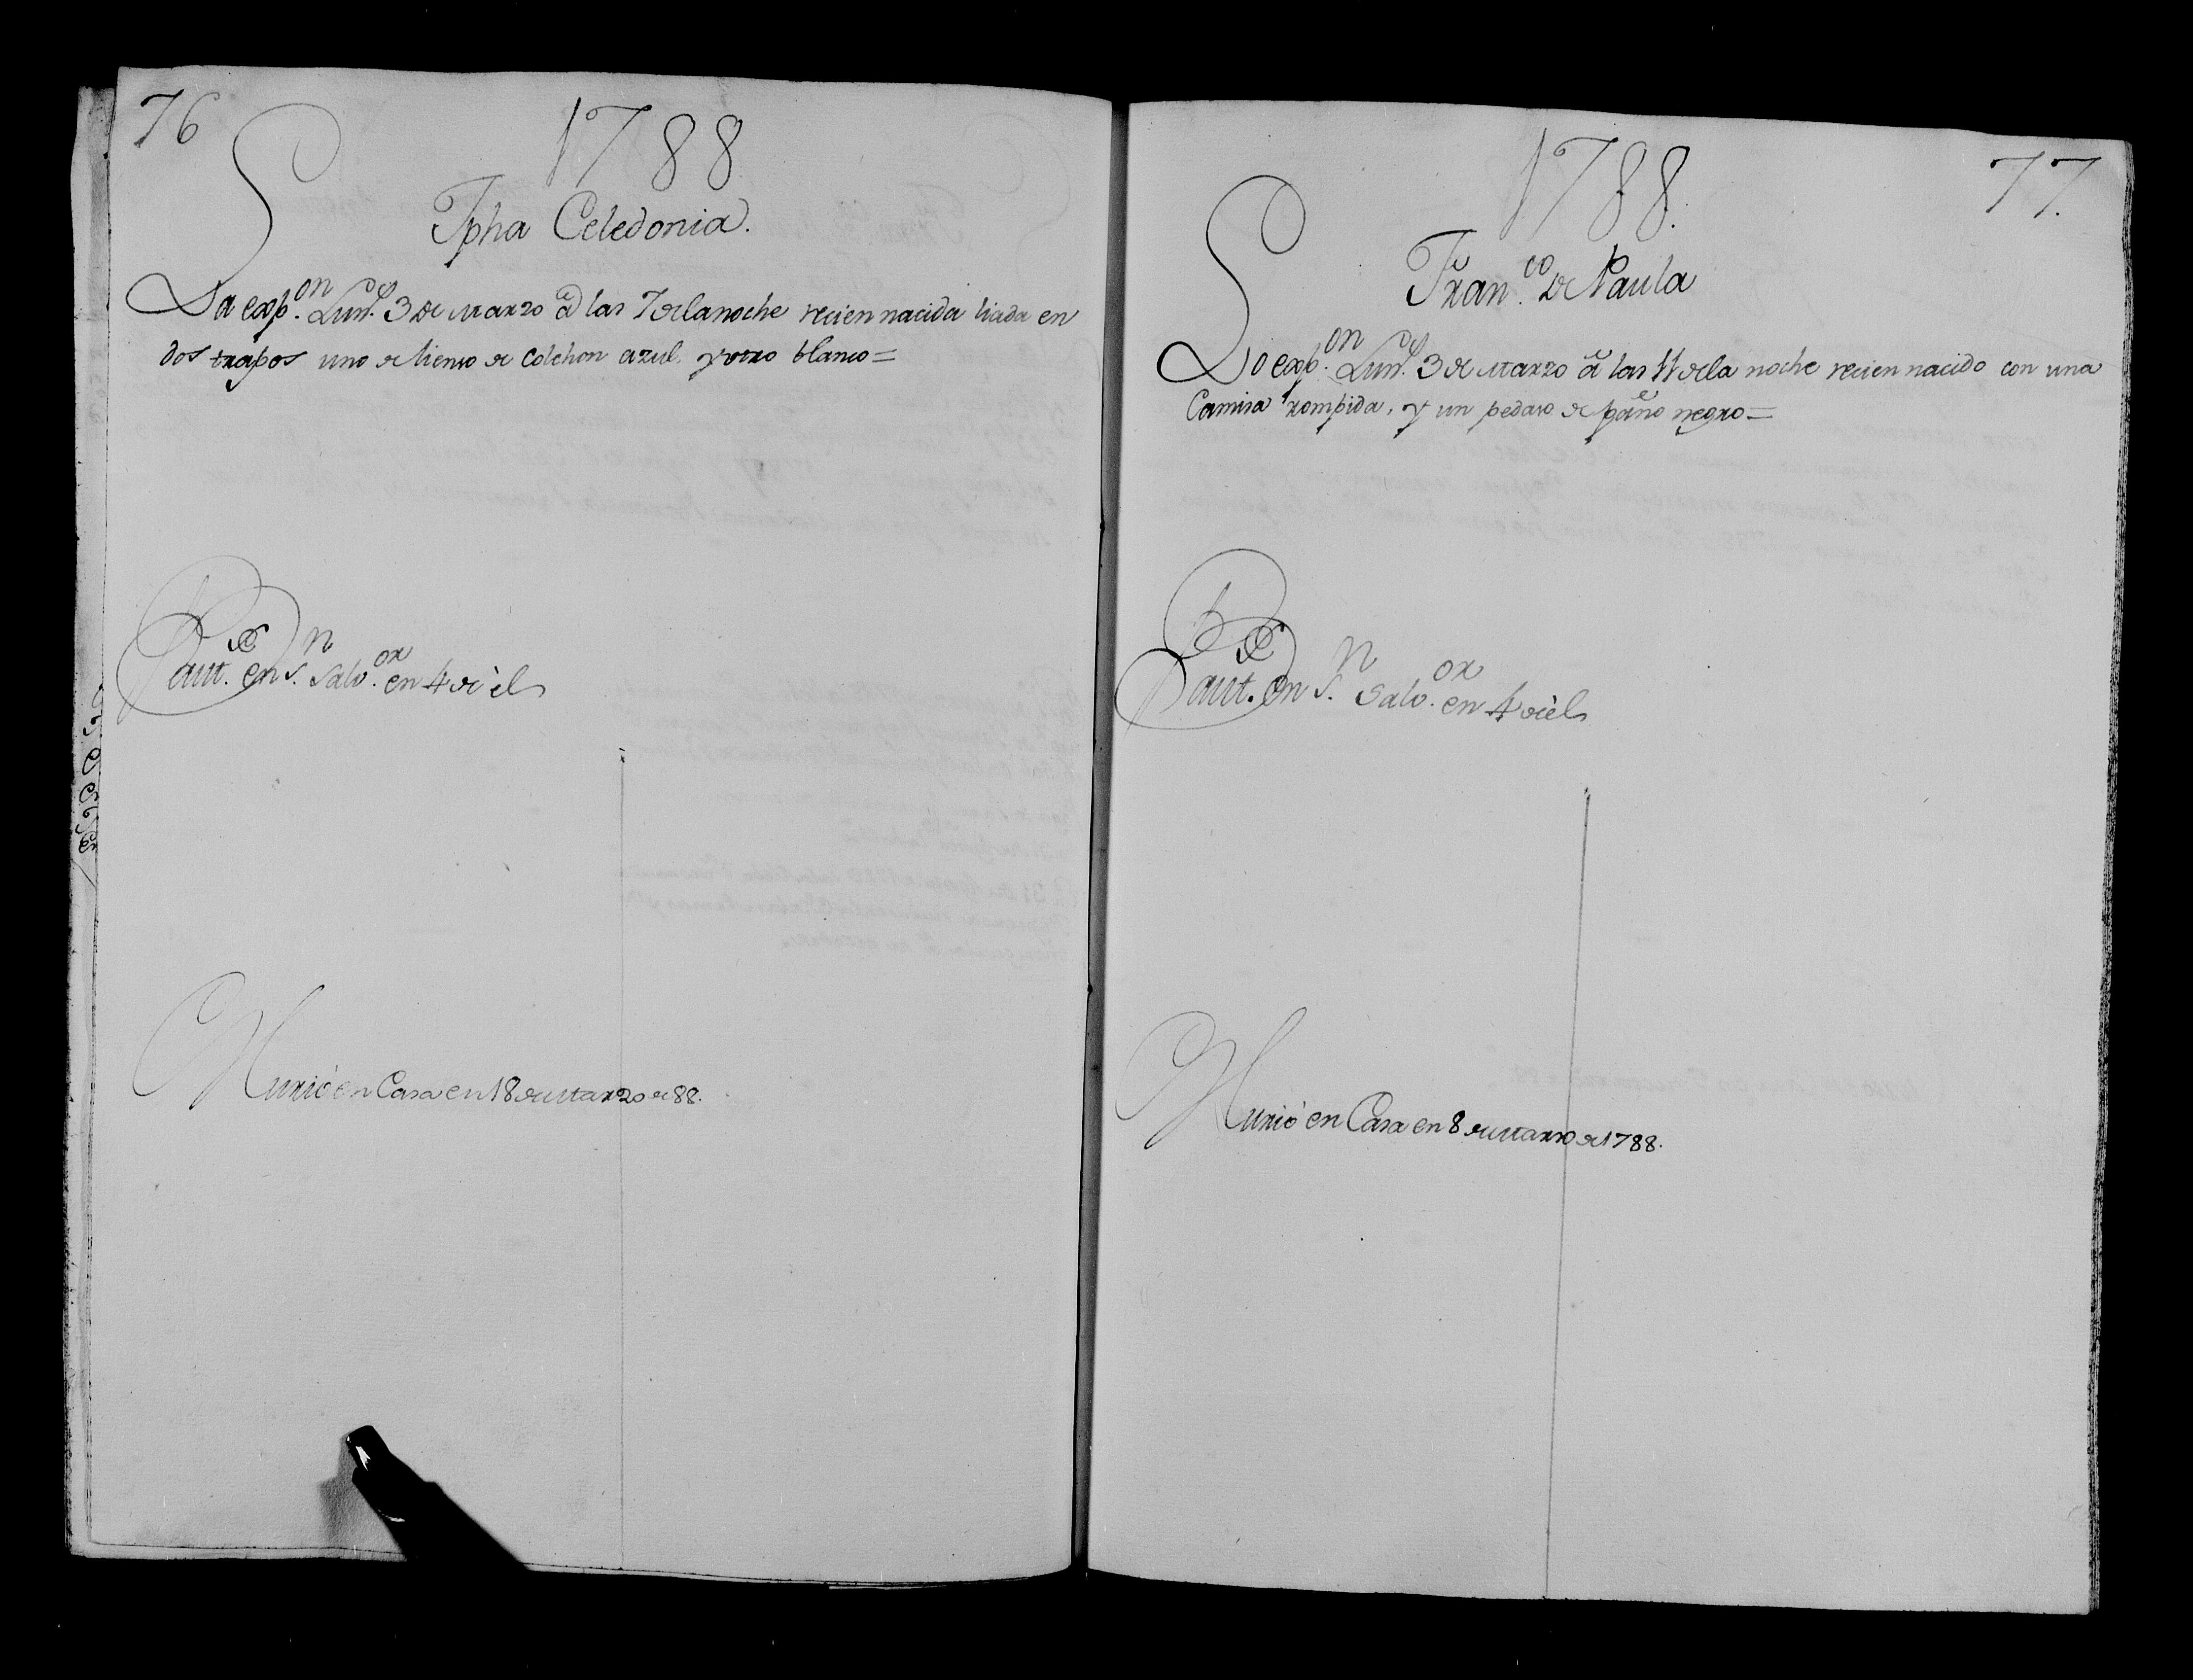 76
1788
Jpha Celedonia.
La exp.on Lun.s 3 de Marzo a las 7 de la noche recien nacida liada en
dos trapos uno de lienso de colchon azul. y otro blanco=
Baut. en S.n Salv.or en 4 de èl
Murió en Casa en 18 de Marzo de 88.
1788.
77.
Fran.co de Paula
Lo exp.on Lun.s 3 de Marzo a las 11 de la noche recien nacido con una
Camisa rompida, y un pedaso de paño negro=
Baut. en S.n Salv.or en 4 de èl
Murió en Casa en 8 de Marzo de 1788.